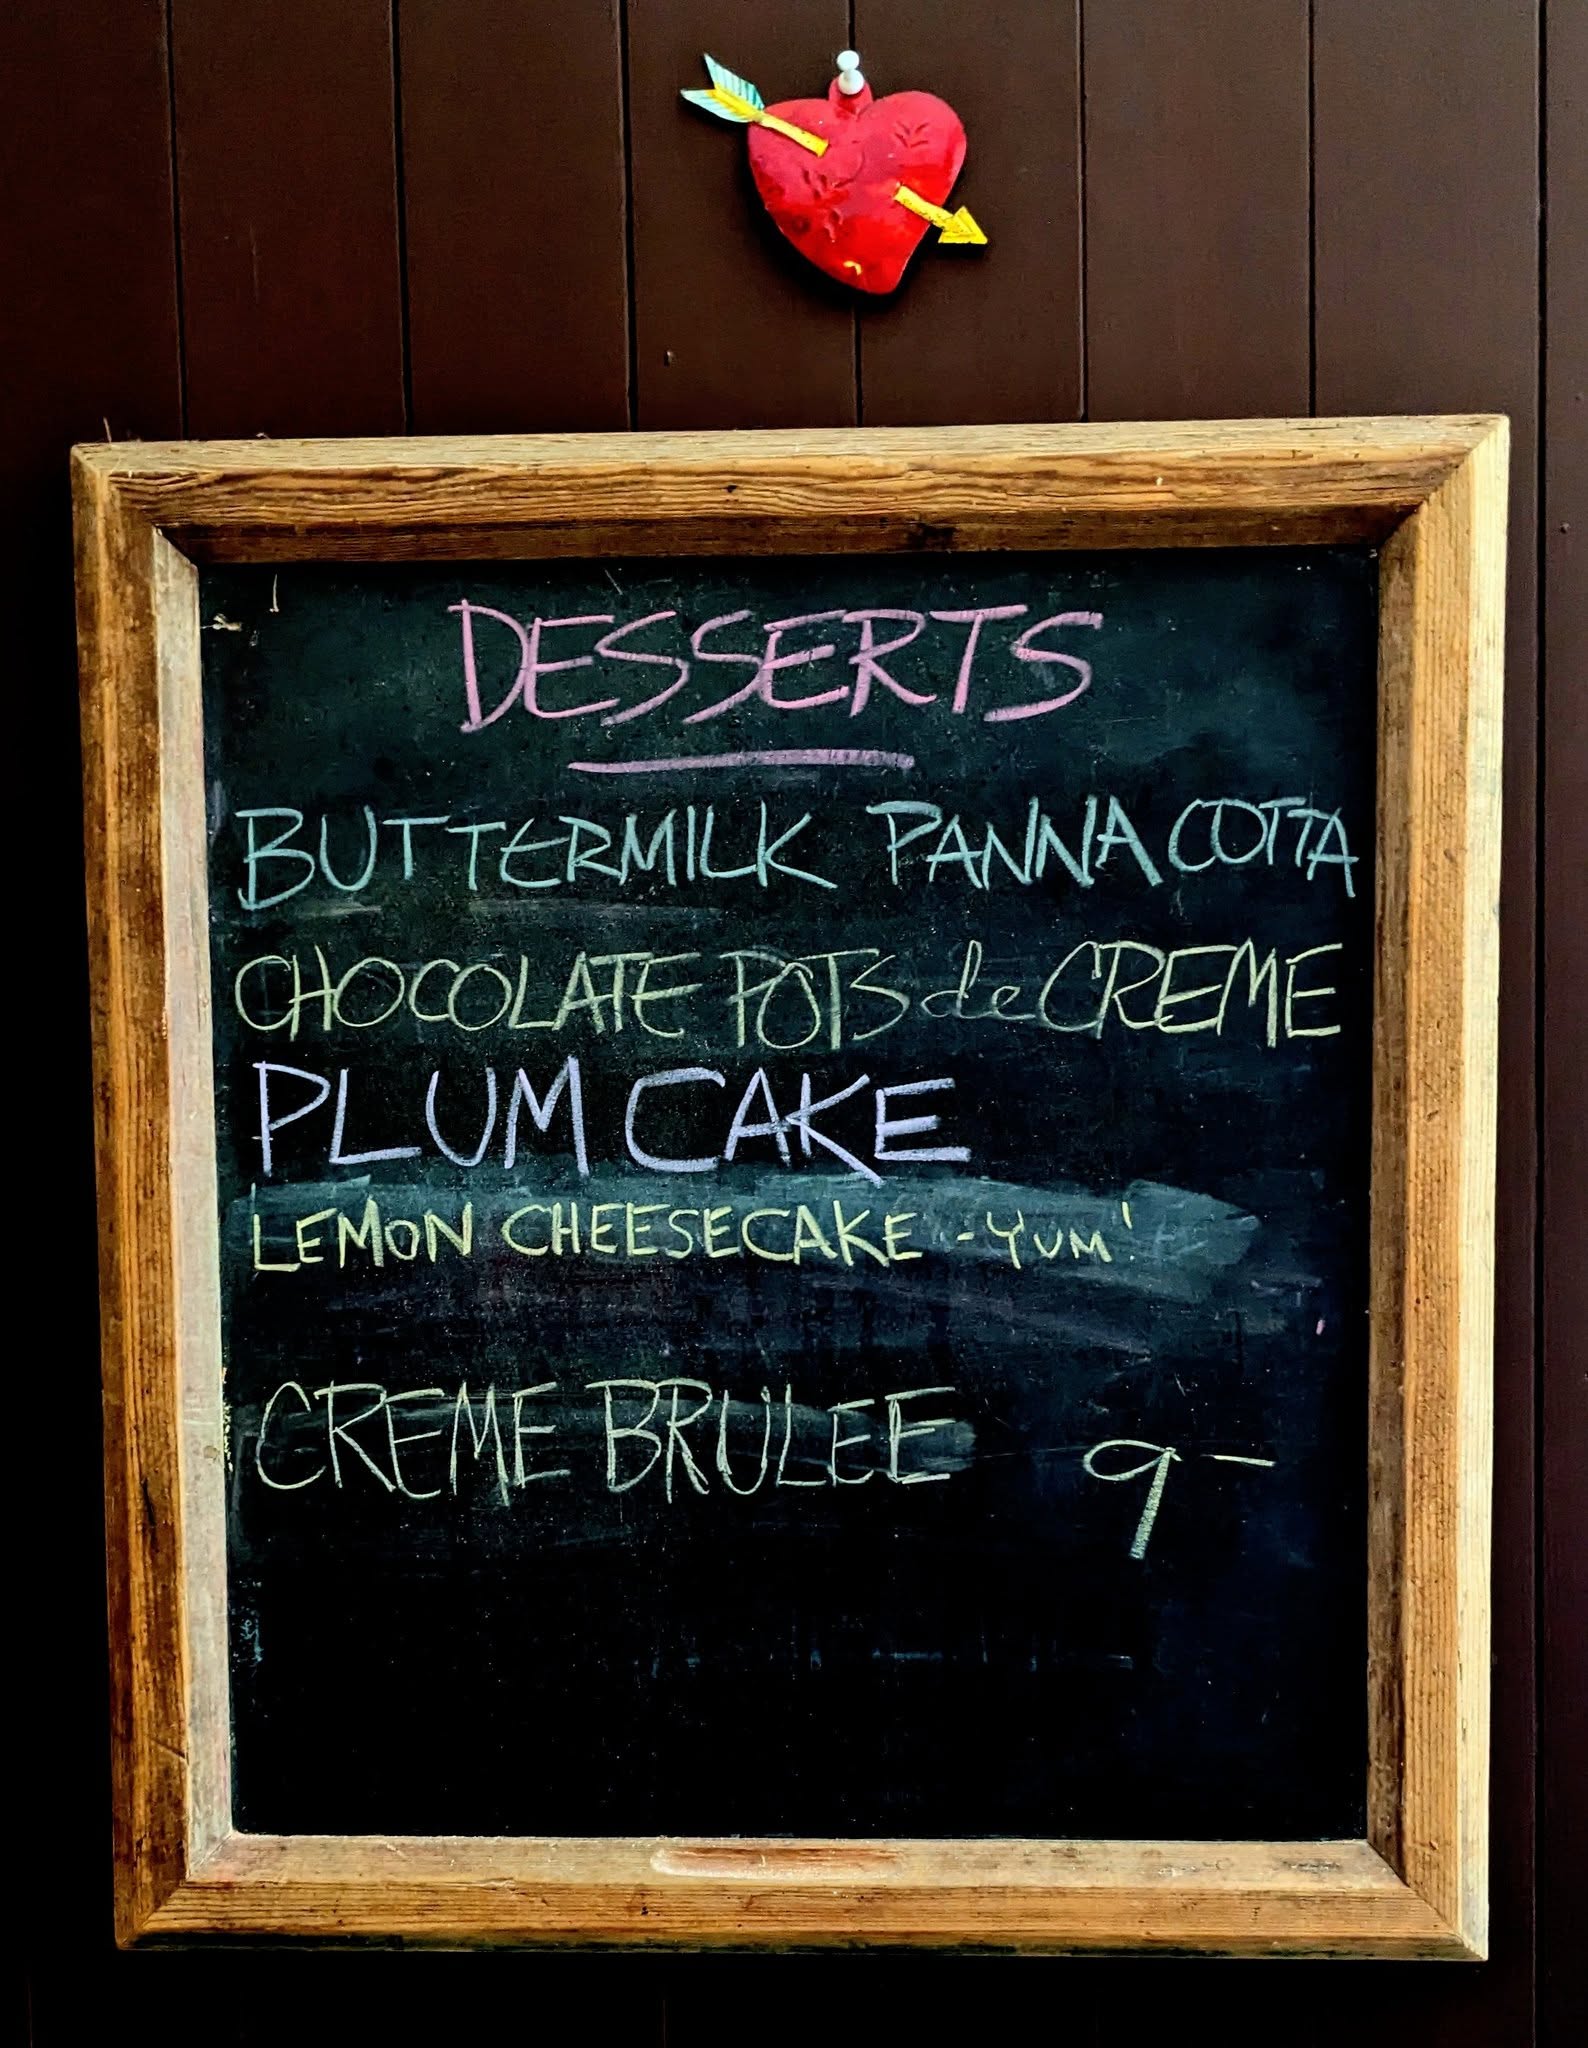 DESSERTS
BUTTERMILK PANNA COTTA
CHOCOLATE POTS de CREME
PLUM CAKE
LEMON CHEESECAKE - YUM!
CREME BRULEE 9-